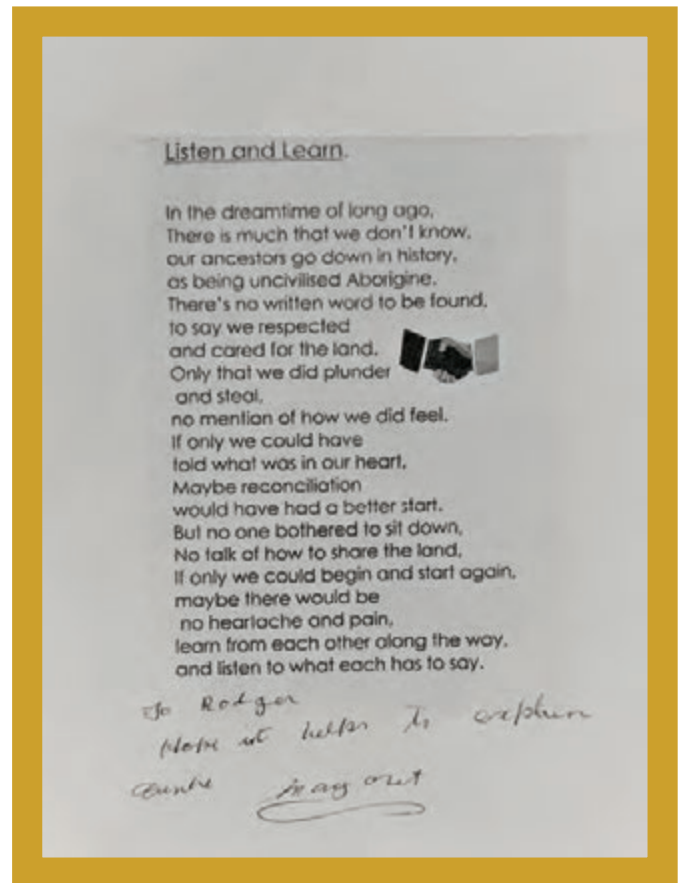 Listen and Learn.
In the dreamtime of long ago,
There is much that we don't know,
our ancestors go down in history,
as being uncivilised Aborigine.
There's no written word to be found,
to say we respected
and cared for the land.
Only that we did plunder
and steal,
no mention of how we did feel.
If only we could have
told what was in our heart,
Maybe reconciliation
would have had a better start.
But no one bothered to sit down,
No talk of how to share the land,
If only we could begin and start again,
maybe there would be
no heartache and pain,
learn from each other along the way,
and listen to what each has to say.
To Rodger
Hope it helps to explain